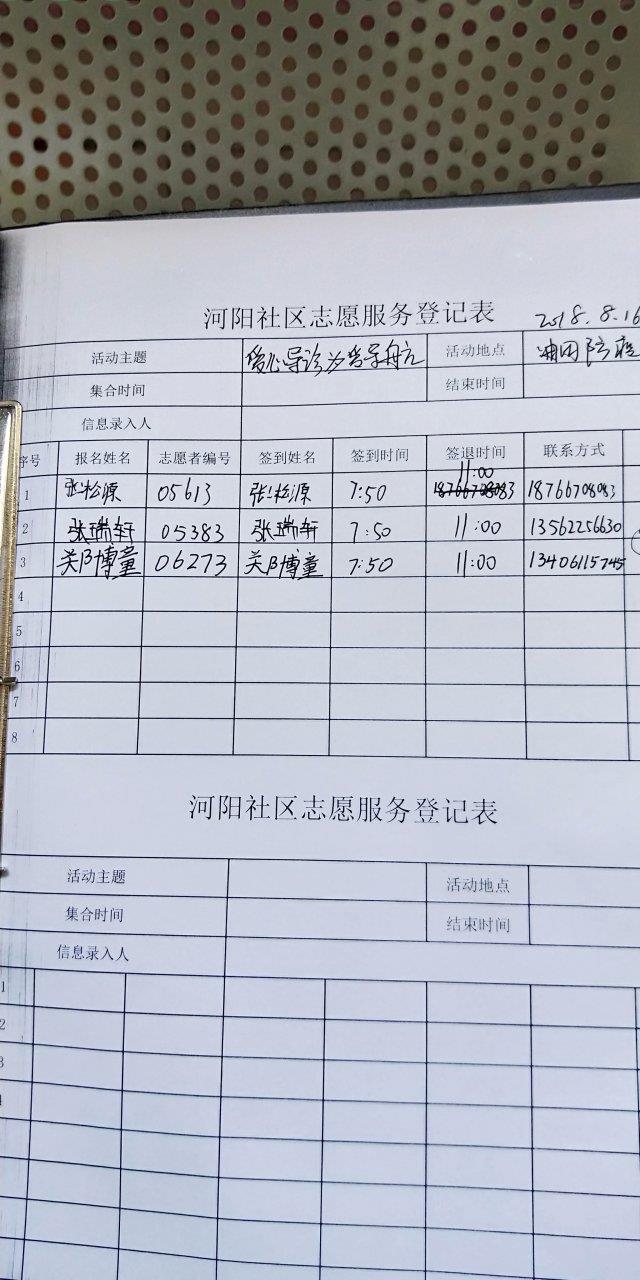 河阳社区志愿服务登记表 2018.8.16
活动主题 爱心导诊为爱导航 活动地点
集合时间 结束时间
信息录入人
序号 报名姓名 志愿者编号 签到姓名 签到时间 签退时间 联系方式
1 张松源 05613 张松源 7:50 11:00 18766708083 18766708083
2 张瑞轩 05383 张瑞轩 7:50 11:00 13562256630
3 关阝博童 06273 关阝博童 7:50 11:00 13406115745
4
5
6
7
8
河阳社区志愿服务登记表
活动主题 活动地点
集合时间 结束时间
信息录入人
1
2
3
4